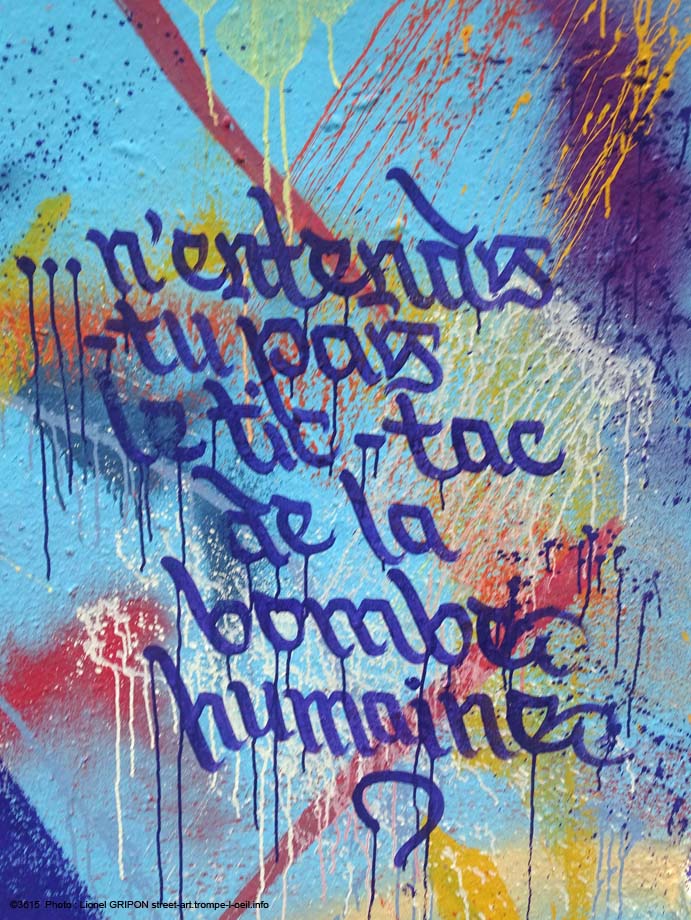 ... n'entends
-tu pas
le tic-tac
de la
bombe
humaine
?
©3615 Photo : Lionel GRIPON street-art.trompe-l-oeil.info